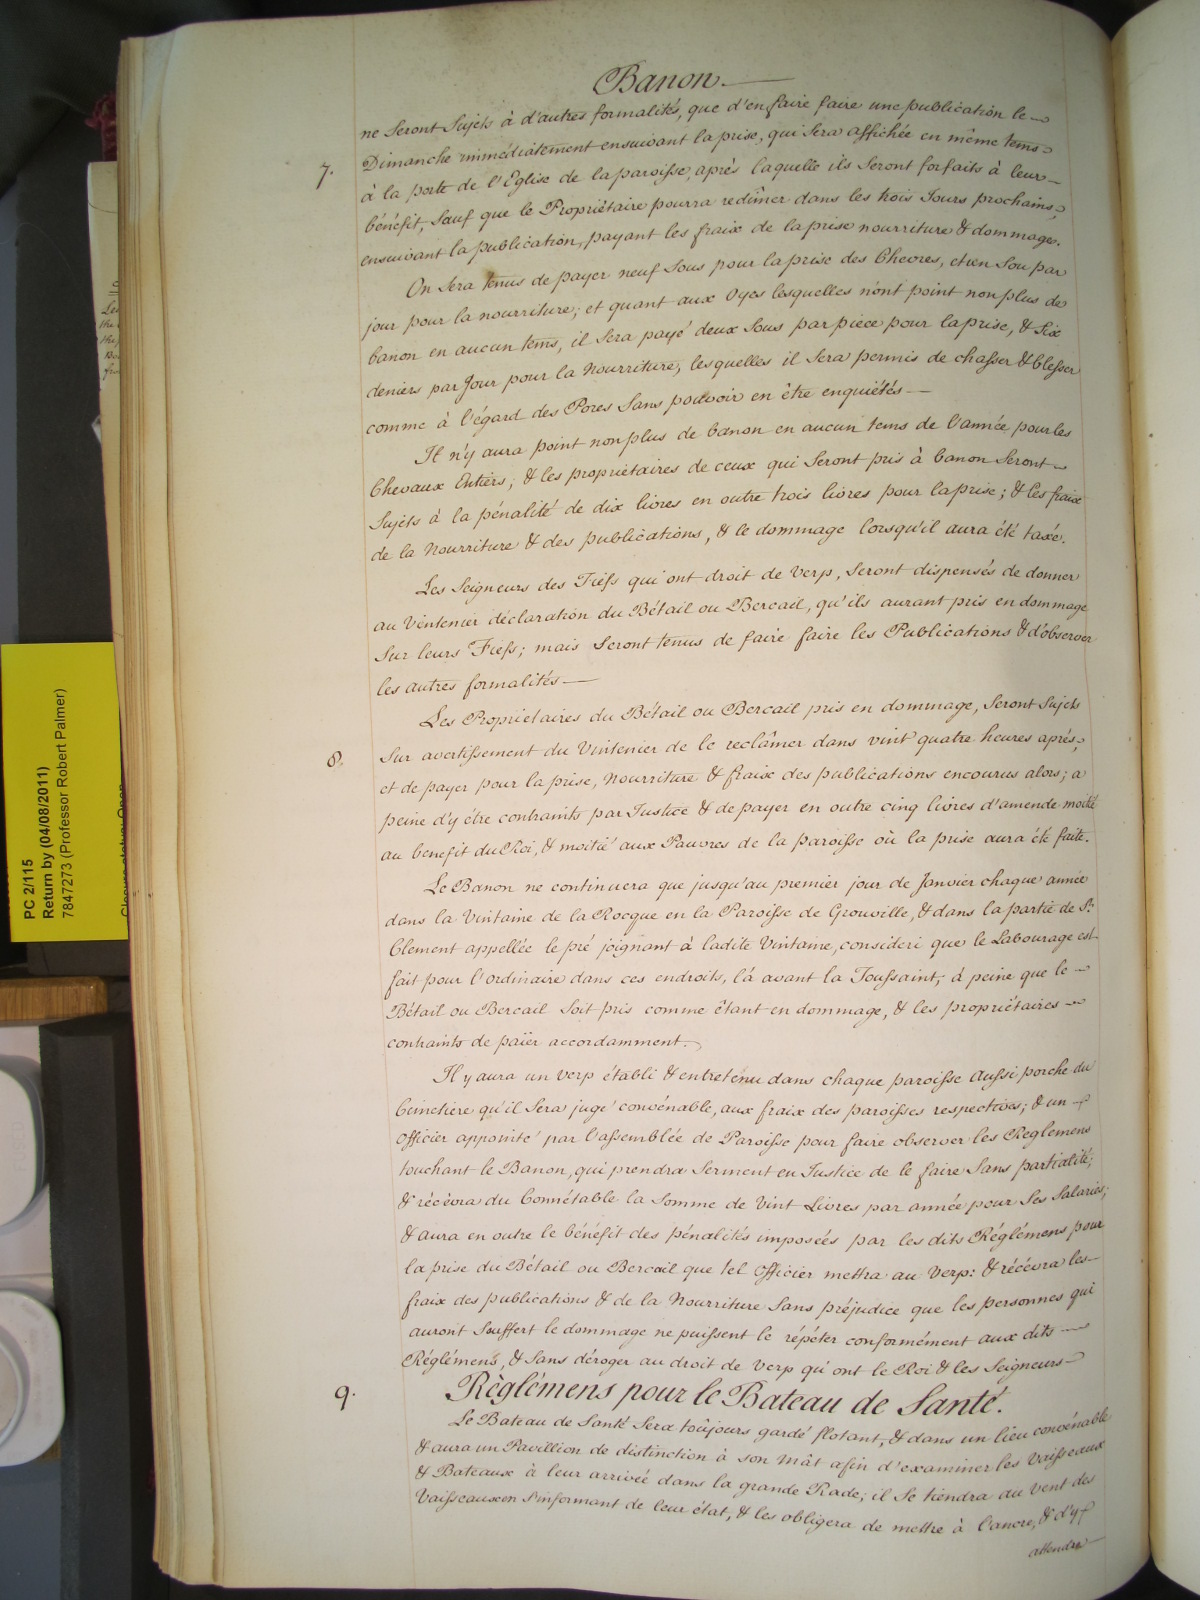 Banon.
ne Seront Sujets à d'autres formalités, que d'en faire faire une publication le
Dimanche immédiatement ensuivant la prise, qui Sera affichée en même tems
7.
à la porte de l'Eglise de la paroisse, après laquelle ils Seront forfaits à leur
bénéfit, Sauf que le Propriétaire pourra redîmer dans les trois Jours prochains,
ensuivant la publication, payant les fraix de la prise nourriture & dommage.
On Sera tenus de payer neuf Sous pour la prise des Chevres, et un Sou par
jour pour la nourriture; et quant aux Oyes lesquelles n'ont point non plus de
banon en aucun tems, il Sera payé deux Sous par piece pour la prise, & Six
deniers par Jour pour la Nourriture, lesquelles il Sera permis de chasser & blesser
comme à l'égard des Porcs Sans pouvoir en être enquiétés
Il n'y aura point non plus de banon en aucun tems de l'année pour les
Chevaux Entiers; & les propriétaires de ceux qui Seront pris à banon Seront
Sujets à la pénalité de dix livres en outre trois livres pour la prise; & les fraix
de la Nourriture & des publications, & le dommage lorsqu'il aura été taxé.
Les Seigneurs des Fiefs qui ont droit de Verp, Seront dispensés de donner
au Vintenier déclaration du Bétail ou Bercail, qu'ils aurant pris en dommage
Sur leurs Fiefs; mais Seront tenus de faire faire les Publications & d'observer
les autres formalités
Les Propriétaires du Bétail ou Bercail pris en dommage, Seront Sujets
8.
Sur avertissement du Vintenier de le reclâmer dans vint quatre heures après,
et de payer pour la prise, Nourriture & fraix des publications encourus alors; a
peine d'y être contraints par Justice & de payer en outre cinq livres d'amende moitié
au benefit du Roi, & moitié aux Pauvres de la paroisse où la prise aura été faite.
Le Banon ne continuera que jusqu'au premier jour de Janvier chaque année
dans la Vintaine de la Rocque en la Paroisse de Grouville, & dans la partie de St.
Clement appellée le pré joignant à ladite Vintaine, consideré que le Labourage est
fait pour l'ordinaire dans ces endroits, là avant la Toussaint; à peine que le
Bétail ou Bercail Soit pris comme étant en dommage, & les propriétaires
contraints de païer accordamment.
Il y aura un Verp établi & entretenu dans chaque paroisse Aussi porche du
Cimetiere qu'il Sera jugé convénable, aux fraix des paroisses respectives; & un
officier appointé par l'assemblée de Paroisse pour faire observer les Reglemens
touchant le Banon, qui prendra Serment en Justice de le faire Sans partialité;
& récévra du Connétable la Somme de Vint Livres par année pour Ses Salaries;
& aura en outre le bénéfit des pénalités imposées par les dits Réglémens pour
la prise du Bétail ou Bercail que tel Officier mettra au Verp: & récévra les
fraix des publications & de la Nourriture Sans préjudice que les personnes qui
auront Souffert le dommage ne puissent le répéter conformément aux dits
Réglémens, & Sans déroger au droit de Verp qu'ont le Roi & les Seigneurs
9.
Règlémens pour le Bateau de Santé.
Le Bateau de Santé Sera toûjours gardé flotant, & dans un lieu convénable
& aura un Pavillion de distinction à son Mât afin d'examiner les Vaisseaux
& Bateaux à leur arrivée dans la grande Rade; il Se tiendra au Vent des
Vaisseaux en S'informant de leur état, & les obligera de mettre à l'ancre, & d'y
attendre
PC 2/115
Return by (04/08/2011)
7847273 (Professor Robert Palmer)